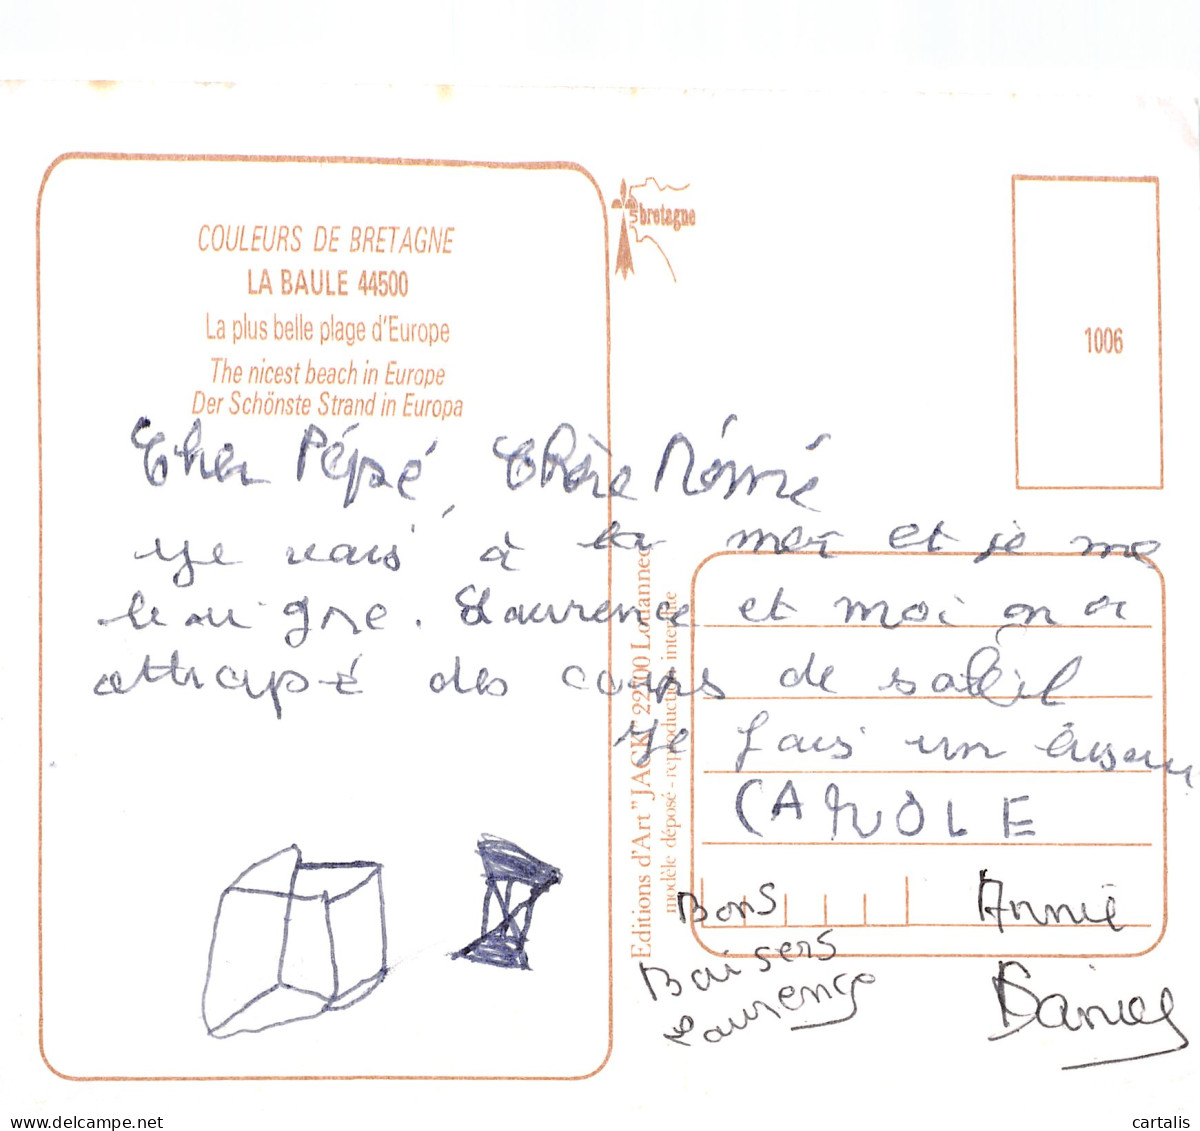 COULEURS DE BRETAGNE
LA BAULE 44500
La plus belle plage d'Europe
The nicest beach in Europe
Der Schönste Strand in Europa
bretagne
1006
Cher Pépé, Chère Mémé
Je vais à la mer et je me
baigne. Laurence et moi on a
attrapé des coups de soleil
Je fais un bisou
CAROLE
Bons
Baisers
Laurence
Annie
Daniel
Editions d'Art "JACK" 22700 Louannec
modèle déposé - reproduction interdite
delcampe.net
cartalis